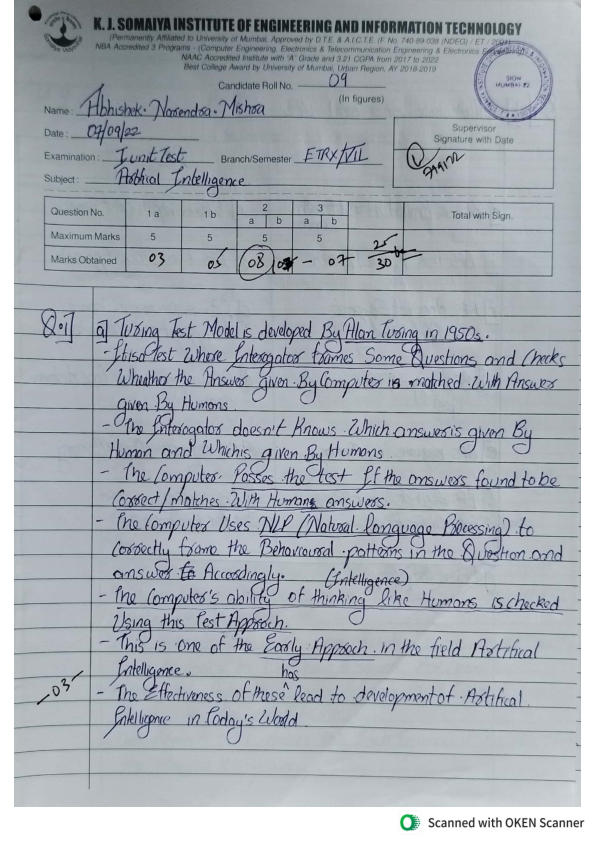 K. J. SOMAIYA INSTITUTE OF ENGINEERING AND INFORMATION TECHNOLOGY
(Permanently Affiliated to University of Mumbai, Approved by D.T.E. & A.I.C.T.E. (F No. 740-89-038 (NDEG) / ET /
NBA Accredited 3 Programs - (Computer Engineering, Electronics & Telecommunication Engineering & Electronics
NAAC Accredited Institute with 'A' Grade and 3.21 CGPA from 2017 to 2022
Best College Award by University of Mumbai, Urban Region, AY 2018-2019
SION
MUMBAI 22
Candidate Roll No. 09
(In figures)
Name : Abhishek. Narendra. Mishra
Date : 07/09/22
Supervisor
Signature with Date
Examination : I unit Test Branch/Semester ETRX/VII
Subject : Artifical Intelligence
Question No. 1 a 1 b 2 a b 3 a b Total with Sign.
Maximum Marks 5 5 5 5
Marks Obtained 03 05 08 - 07 25/30
Q.1] a] Turing Test Model is developed By Alan Turing in 1950s.
- It is a Test Where Interogator frames Some Questions and Checks
Wheather the Answer given By Computer is matched With Answer
given By Humans
- The Interogator doesn't Knows Which answer is given By
Human and Which is given By Humans
- The Computer Passes the test If the answers found to be
Correct/matches With Humans answers.
- The Computer Uses NLP (Natural Language Processing) to
Correctly frame the Behavioural patterns in the Question and
answer to Accordingly. (Intelligence)
- The Computer's ability of thinking like Humans is checked
Using this Test Approch.
- This is one of the Early Approch in the field Artifical
Intelligence.
- The Effectiveness of these ^has lead to development of Artifical
Intelligence in Today's World
-03-
Scanned with OKEN Scanner